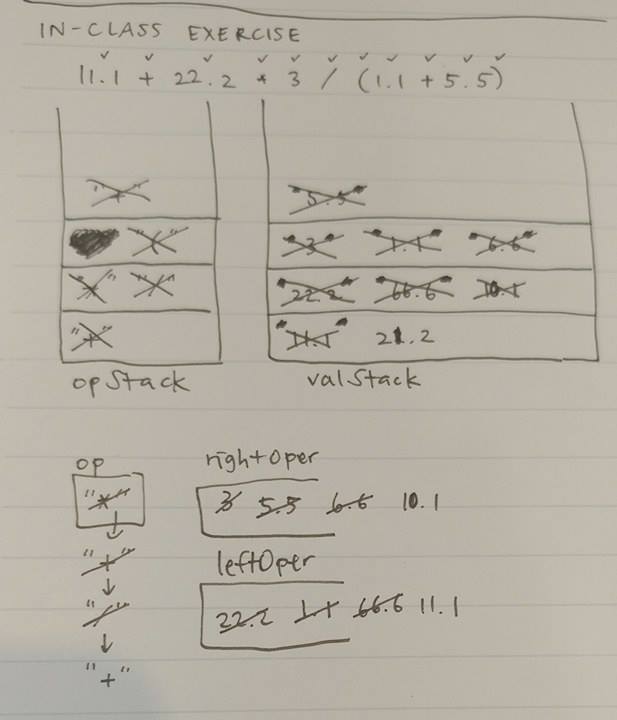 IN-CLASS EXERCISE
11.1 + 22.2 * 3 / (1.1 + 5.5)
"+" "5.5"
"(" "3" "1.1" "6.6"
"*" "/" "22.2" "66.6" 10.1
"+" "11.1" 21.2
opStack valStack
op rightOper
"*" 3 5.5 6.6 10.1
"+" leftOper
"/" 22.2 1.1 66.6 11.1
"+"